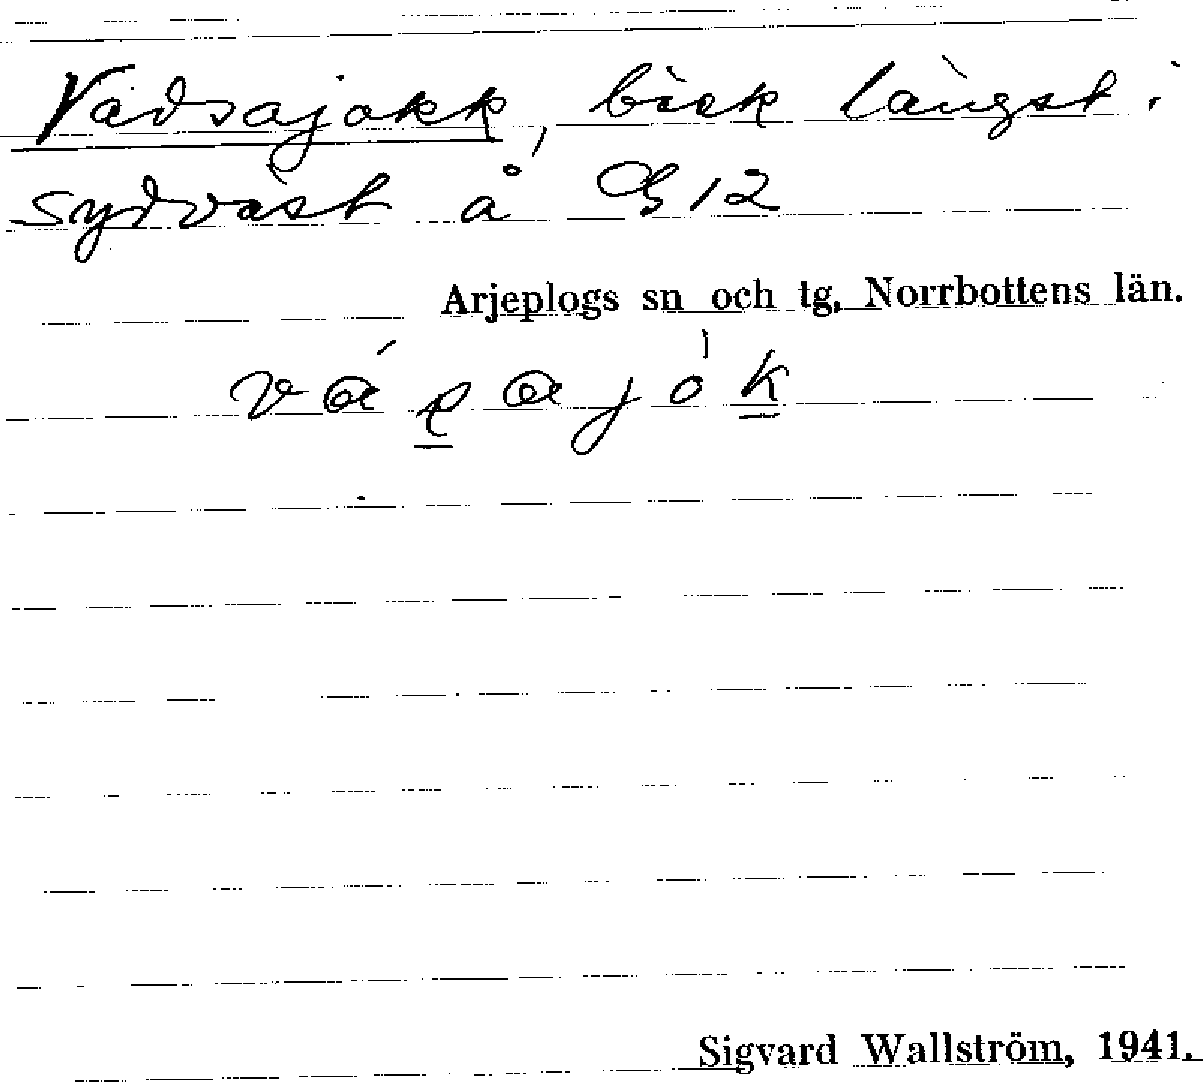 Vadsajokk, bäck längst i
sydväst å G12
Arjeplogs sn och tg, Norrbottens län.
Sigvard Wallström, 1941.